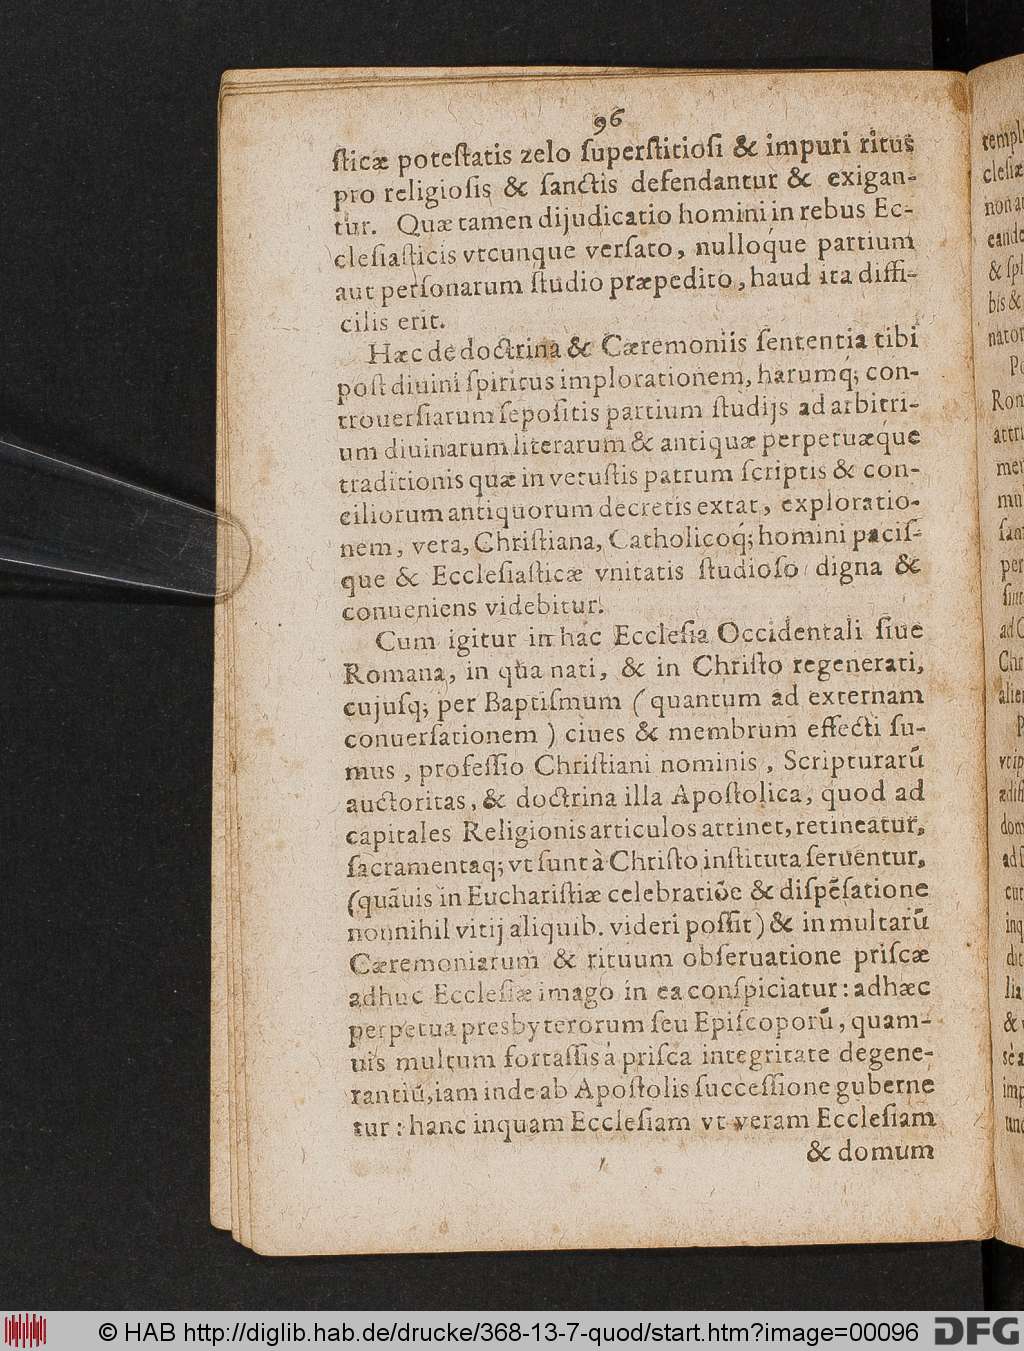 96
sticæ potestatis zelo superstitiosi & impuri ritus
pro religiosis & sanctis defendantur & exigan-
tur. Quæ tamen dijudicatio homini in rebus Ec-
clesiasticis vtcunque versato, nulloque partium
aut personarum studio præpedito, haud ita diffi-
cilis erit.
Hæc de doctrina & Cæremoniis sententia tibi
post diuini spiritus implorationem, harumq; con-
trouersiarum sepositis partium studijs ad arbitri-
um diuinarum literarum & antiquæ perpetuæque
traditionis quæ in vetustis patrum scriptis & con-
ciliorum antiquorum decretis extat, exploratio-
nem, vera, Christiana, Catholicoq; homini pacis-
que & Ecclesiasticæ vnitatis studioso digna &
conueniens videbitur.
Cum igitur in hac Ecclesia Occidentali siue
Romana, in qua nati, & in Christo regenerati,
cujusq; per Baptismum ( quantum ad externam
conuersationem ) ciues & membrum effecti su-
mus, professio Christiani nominis, Scripturarū
auctoritas, & doctrina illa Apostolica, quod ad
capitales Religionis articulos attinet, retineatur,
sacramentaq; vt sunt à Christo instituta seruentur,
(quāuis in Eucharistiæ celebratiōe & dispēsatione
nonnihil vitij aliquib. videri possit) & in multarū
Cæremoniarum & rituum obseruatione priscæ
adhuc Ecclesiæ imago in ea conspiciatur: adhæc
perpetua presbyterorum seu Episcoporū, quam-
uis multum fortassis á prisca integritate degene-
rantiū, iam inde ab Apostolis successione guberne
tur: hanc inquam Ecclesiam vt veram Ecclesiam
& domum
© HAB http://diglib.hab.de/drucke/368-13-7-quod/start.htm?image=00096
DFG